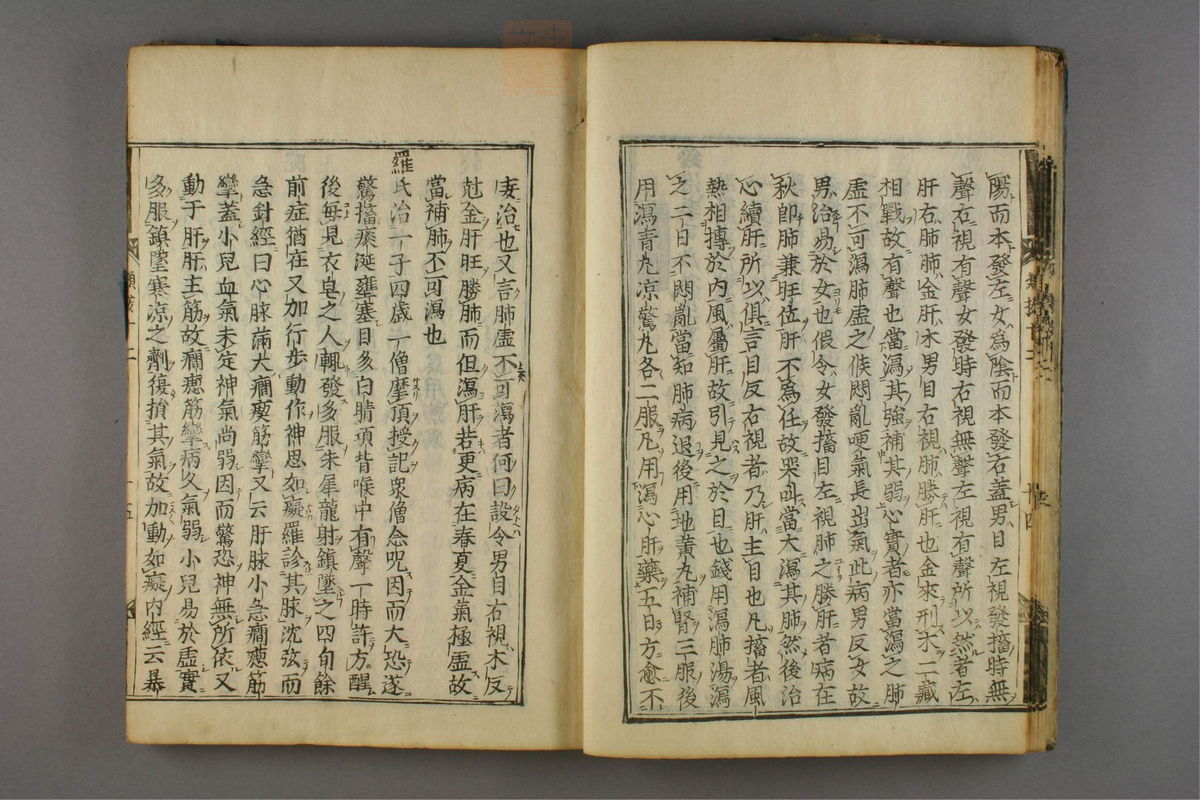 陽而本發左女為陰而本發右蓋男目左視發搐時無
聲右視有聲女發時右視無聲左視有聲所以然者左
肝右肺肺金肝木男目右視肺勝肝也金來刑木二藏
相戰故有聲也當瀉其強補其弱心實者亦當瀉之肺
虛不可瀉肺虛之候悶亂哽氣長出氣此病男反女故
男治易於女也假令女發搐目左視肺之勝肝者病在
秋即肺兼旺位肝不為任故哭叫當大瀉其肺然後治
心續肝所以俱言目反右視者乃肝主目也凡搐者風
熱相搏於內風屬肝故引見之於目也錢用瀉肺湯瀉
之二日不悶亂當知肺病退後用地黃丸補腎三服後
用瀉青丸涼驚丸各二服凡用瀉心肝藥五日方愈不
類按十二
十四
妄治也又言肺虛不可瀉者何曰設令男目右視木反
尅金肝旺勝肺而但瀉肝若更病在春夏金氣極虛故
當補肺不可瀉也
羅氏治一子四歲一僧摩頂授記眾僧念咒因而大恐遂
驚搐痰涎壅塞目多白睛項背喉中有聲一時許方醒
後每見衣皂之人輒發多服朱犀龍射鎮墜之四旬餘
前症猶在又加行步動作神思如癡羅診其脉沈弦而
急針經曰心脉滿大癇瘈筋攣又云肝脉小急癇瘛筋
攣蓋小兒血氣未定神氣尚弱因而驚恐神無所依又
動于肝肝主筋故癇瘛筋攣病久氣弱小兒易於虛實
多服鎮墜寒涼之劑復損其氣故加動如癡內經云暴
類按十二
五